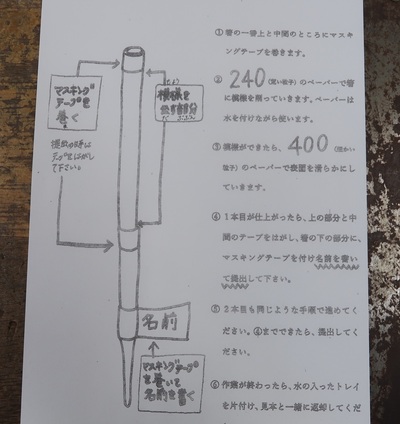 マスキング
テープを
巻く
提出の時は
テープをはがし
て下さい。
もよう
模様を
出す部分
だ ぶぶん
名前
マスキングテープ
を巻いて
名前を書く
①箸の一番上と中間のところにマスキ
ングテープを巻きます。
②240(荒い粒子)のペーパーで箸
に模様を削っていきます。ペーパーは
水を付けながら使います。
③模様ができたら、400(細かい
粒子)のペーパーで表面を滑らかにし
ていきます。
④1本目が仕上がったら、上の部分と中
間のテープをはがし、箸の下の部分に、
マスキングテープを付け名前を書い
て提出して下さい。
⑤2本目も同じような手順で進めてく
ださい。④までできたら、提出してくだ
さい。
⑥作業が終わったら、水の入ったトレイ
を片付け、見本と一緒に返却してくだ